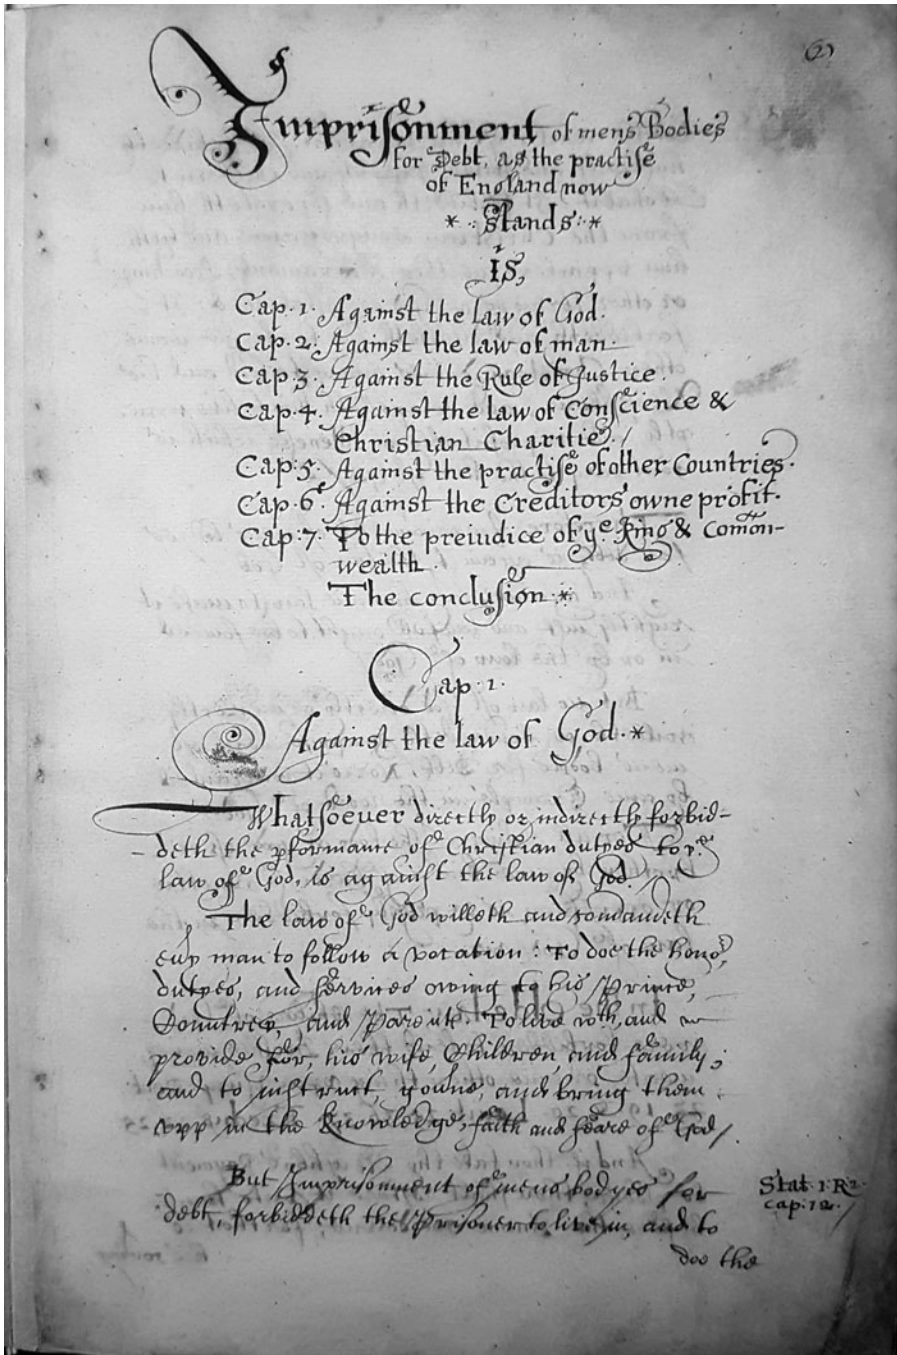 6
Imprisonment of mens Bodies
for Debt, as the practise
of England now
* : Stands : *
is,
Cap. 1. Against the law of God.
Cap. 2. Against the law of man.
Cap. 3. Against the Rule of Justice.
Cap. 4. Against the law of Conscience &
Christian Charitie. /
Cap. 5. Against the practise of other Countries.
Cap. 6. Against the Creditors owne profit.
Cap. 7. To the preiudice of ye. King & Comon-
wealth.
The conclusion *
Cap. 1.
Against the law of God. *
Whatsoeuer directly or indirectly forbid-
deth the pformance of Christian dutyes to ye.
law of God, is against the law of God.
The law of God willeth and comandeth
euy man to follow a vocation : To doe the honor,
dutyes, and services owing to his Prince,
Countrey, and Parents. To live wth, and
provide for, his wife, Children, and family;
and to instruct, gouñe, and bring them
vpp in the knowledge, faith and feare of God /.
But Imprisonment of mens bodyes for
debt, forbiddeth the Prisoner to live in, and to
Stat. 1. R2.
cap. 12. /
doe the